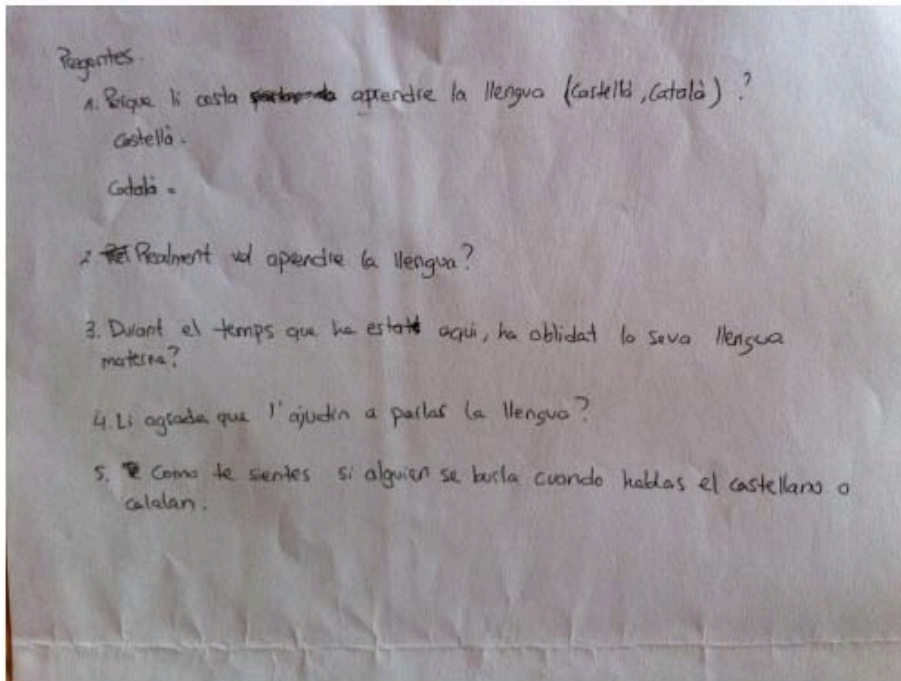 Pregontes.
1. Porque li costa aprendre la llengua (Castellà, Català) ?
Castellà.
Català =
2. Realment vol aprendre la llengua?
3. Durant el temps que ha estat aqui, ha oblidat la seva llengua
materna?
4. Li agrada que l'ajudin a parlar la llengua?
5. Como te sientes si alguien se burla cuando hablas el castellano o
catalan.